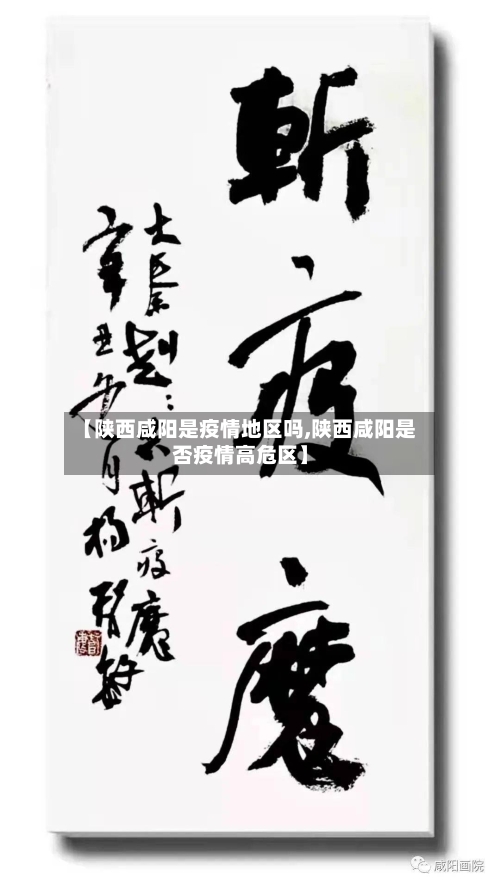 斬
疫
魔
大秦
斬疫魔
辛丑
月杨
【陕西咸阳是疫情地区吗,陕西咸阳是
否疫情高危区】
咸阳画院